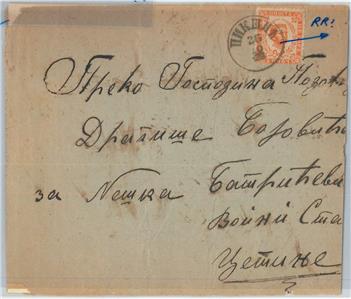 RR!
НИКШИЋ
26
Преко Господина
Драгише Боровић
за Нешка Батрићеви
Војни Ста
Цетиње